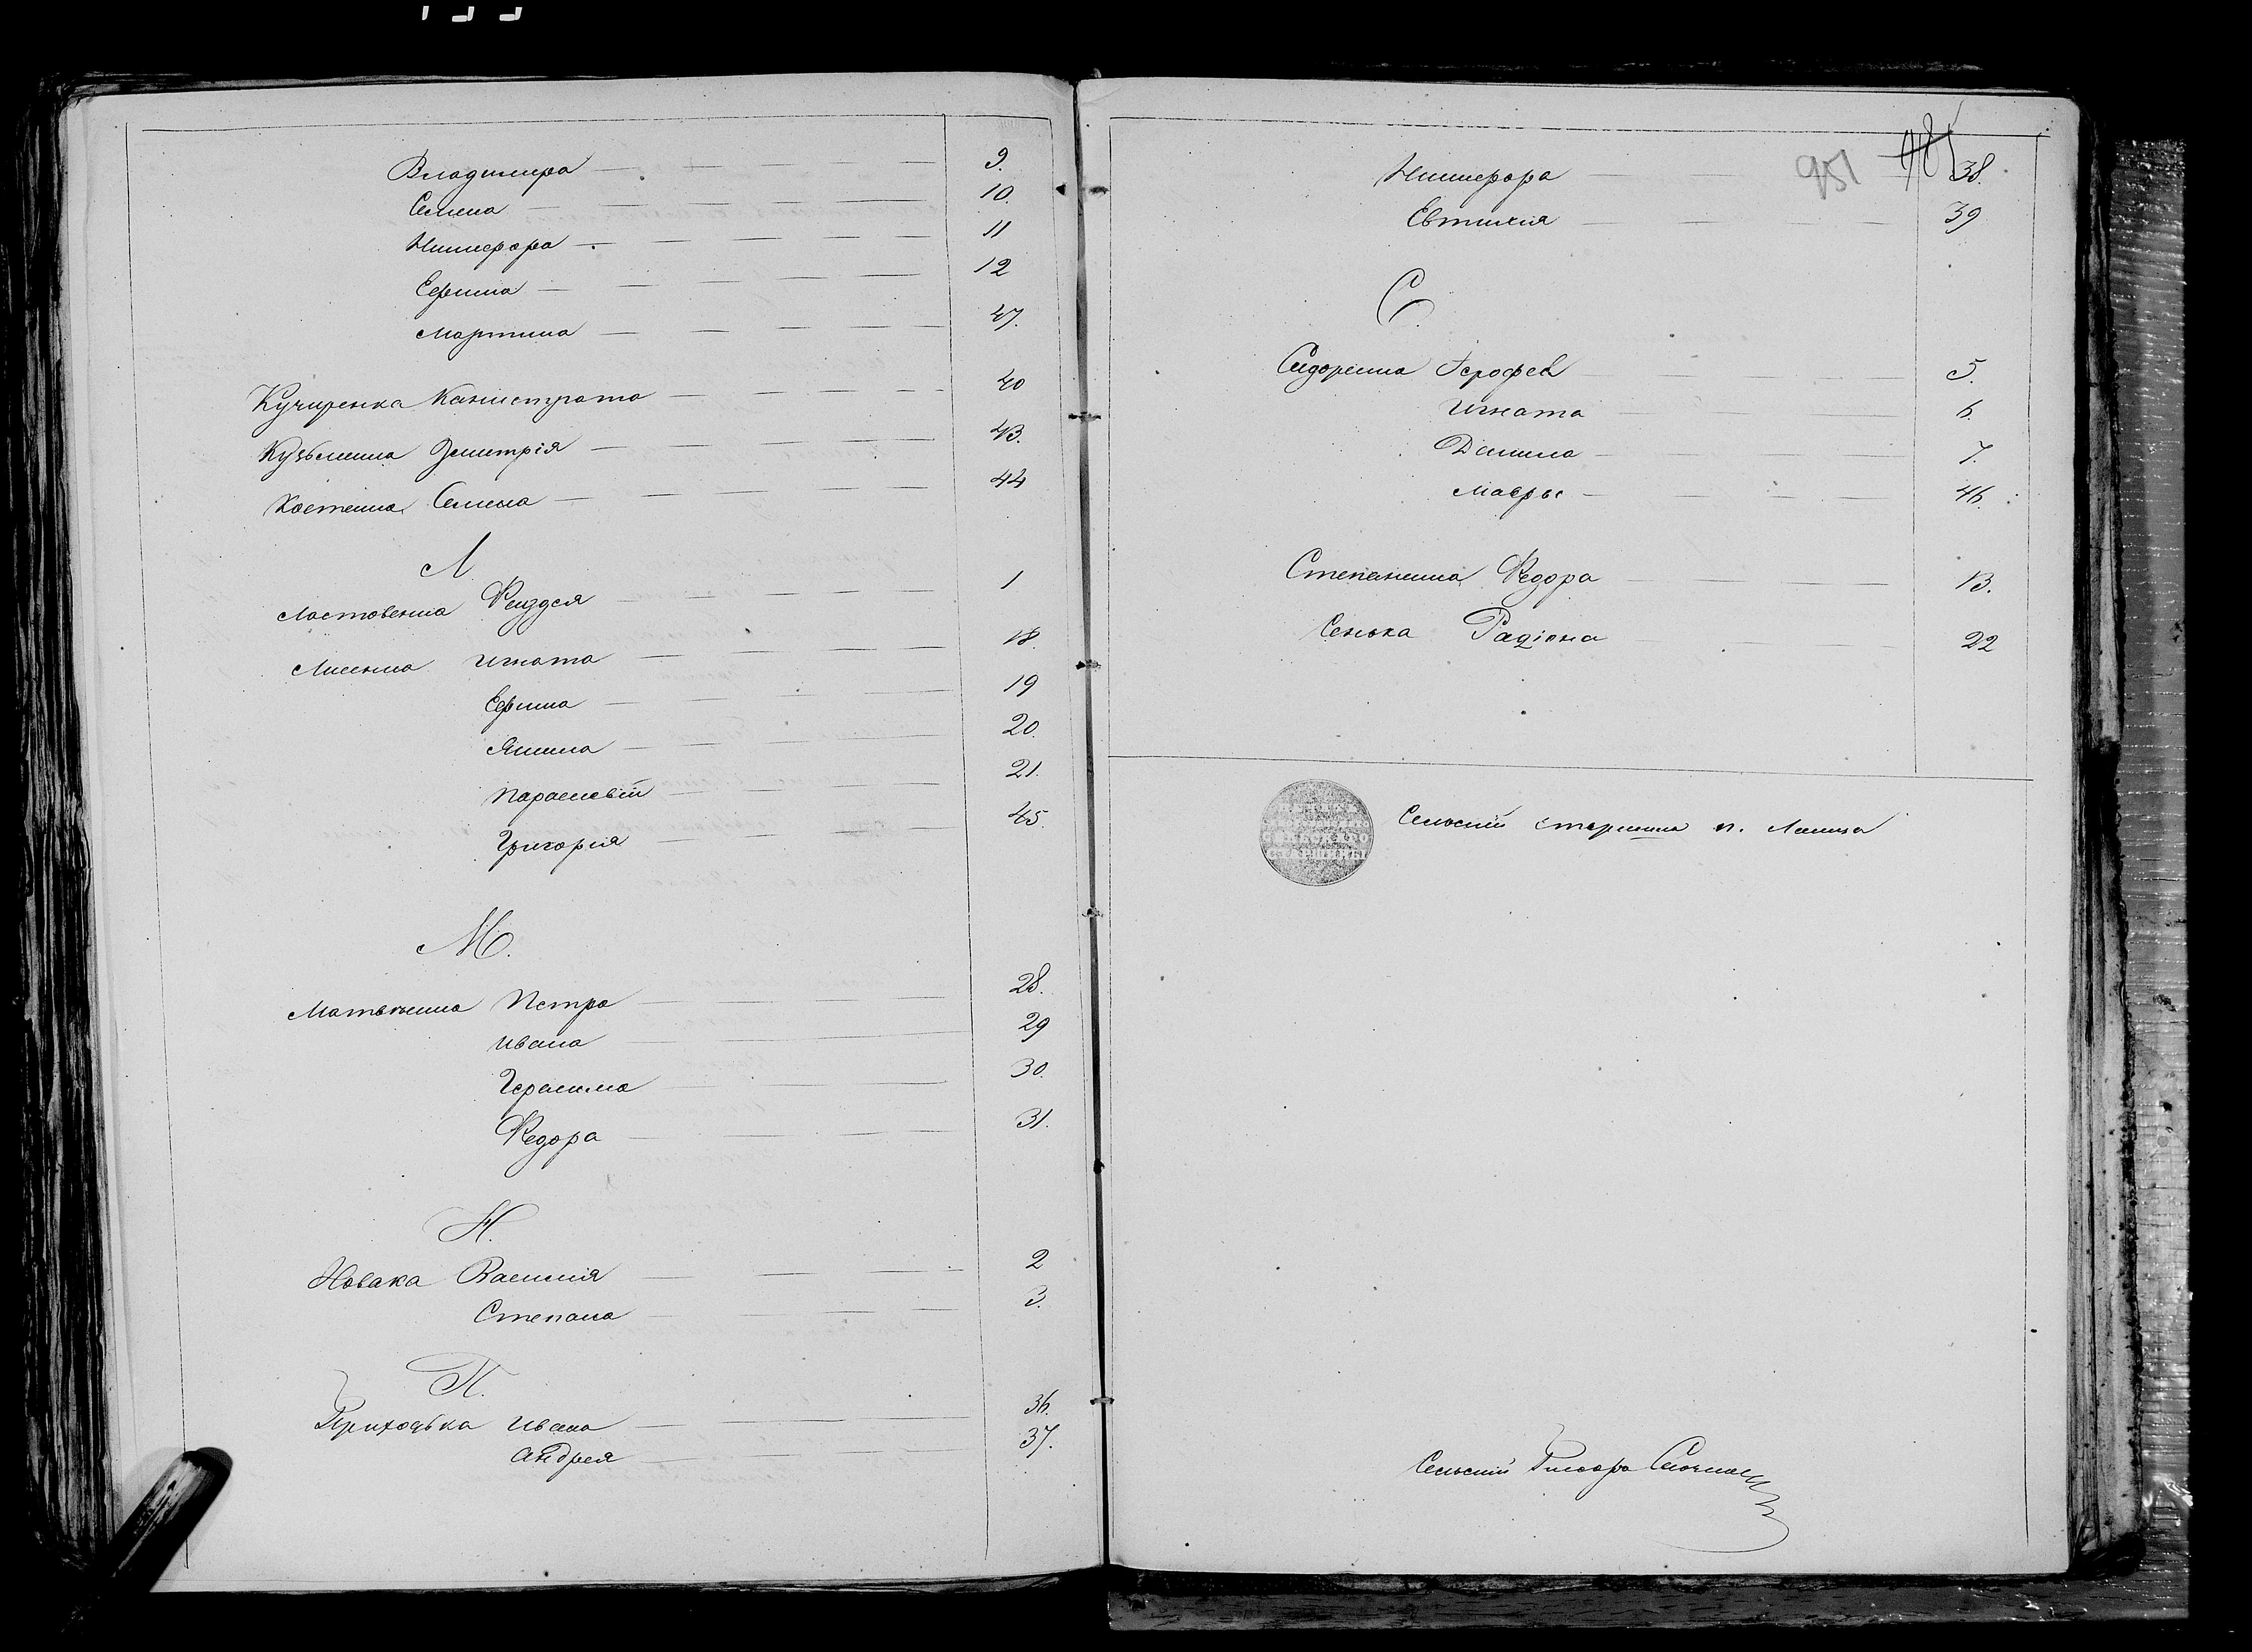 Владимира 9.
Семена 10.
Никифора 11
Ефима 12
Мартина 47.
Кучиренка Калистрата 40
Кузьменка Дмитрія 43.
Костенка Семена 44
Л
Ластовенка Фаддея 1
Лисенка Игната 18.
Ефима 19
Якима 20.
Параскевіи 21.
Григорія 45.
М.
Матвіенка Петра 28.
Ивана 29
Герасима 30.
Федора 31.
Н.
Новака Василія 2
Степана 3.
П.
Приходька Ивана 36.
Андрея 37.
951
Никифора 38.
Евтихія 39
С.
Сидоренка Ерофея 5.
Игната 6.
Данила 7.
Мавры 46.
Степаненка Федора 13.
Сенька Радіона 22
СТАРШИНЫ
Сельскій старшина
Сельскій Писарь